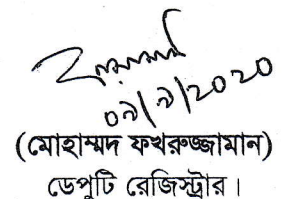 ০৯/৯/২০২০
(মোহাম্মদ ফখরুজ্জামান)
ডেপুটি রেজিস্ট্রার।